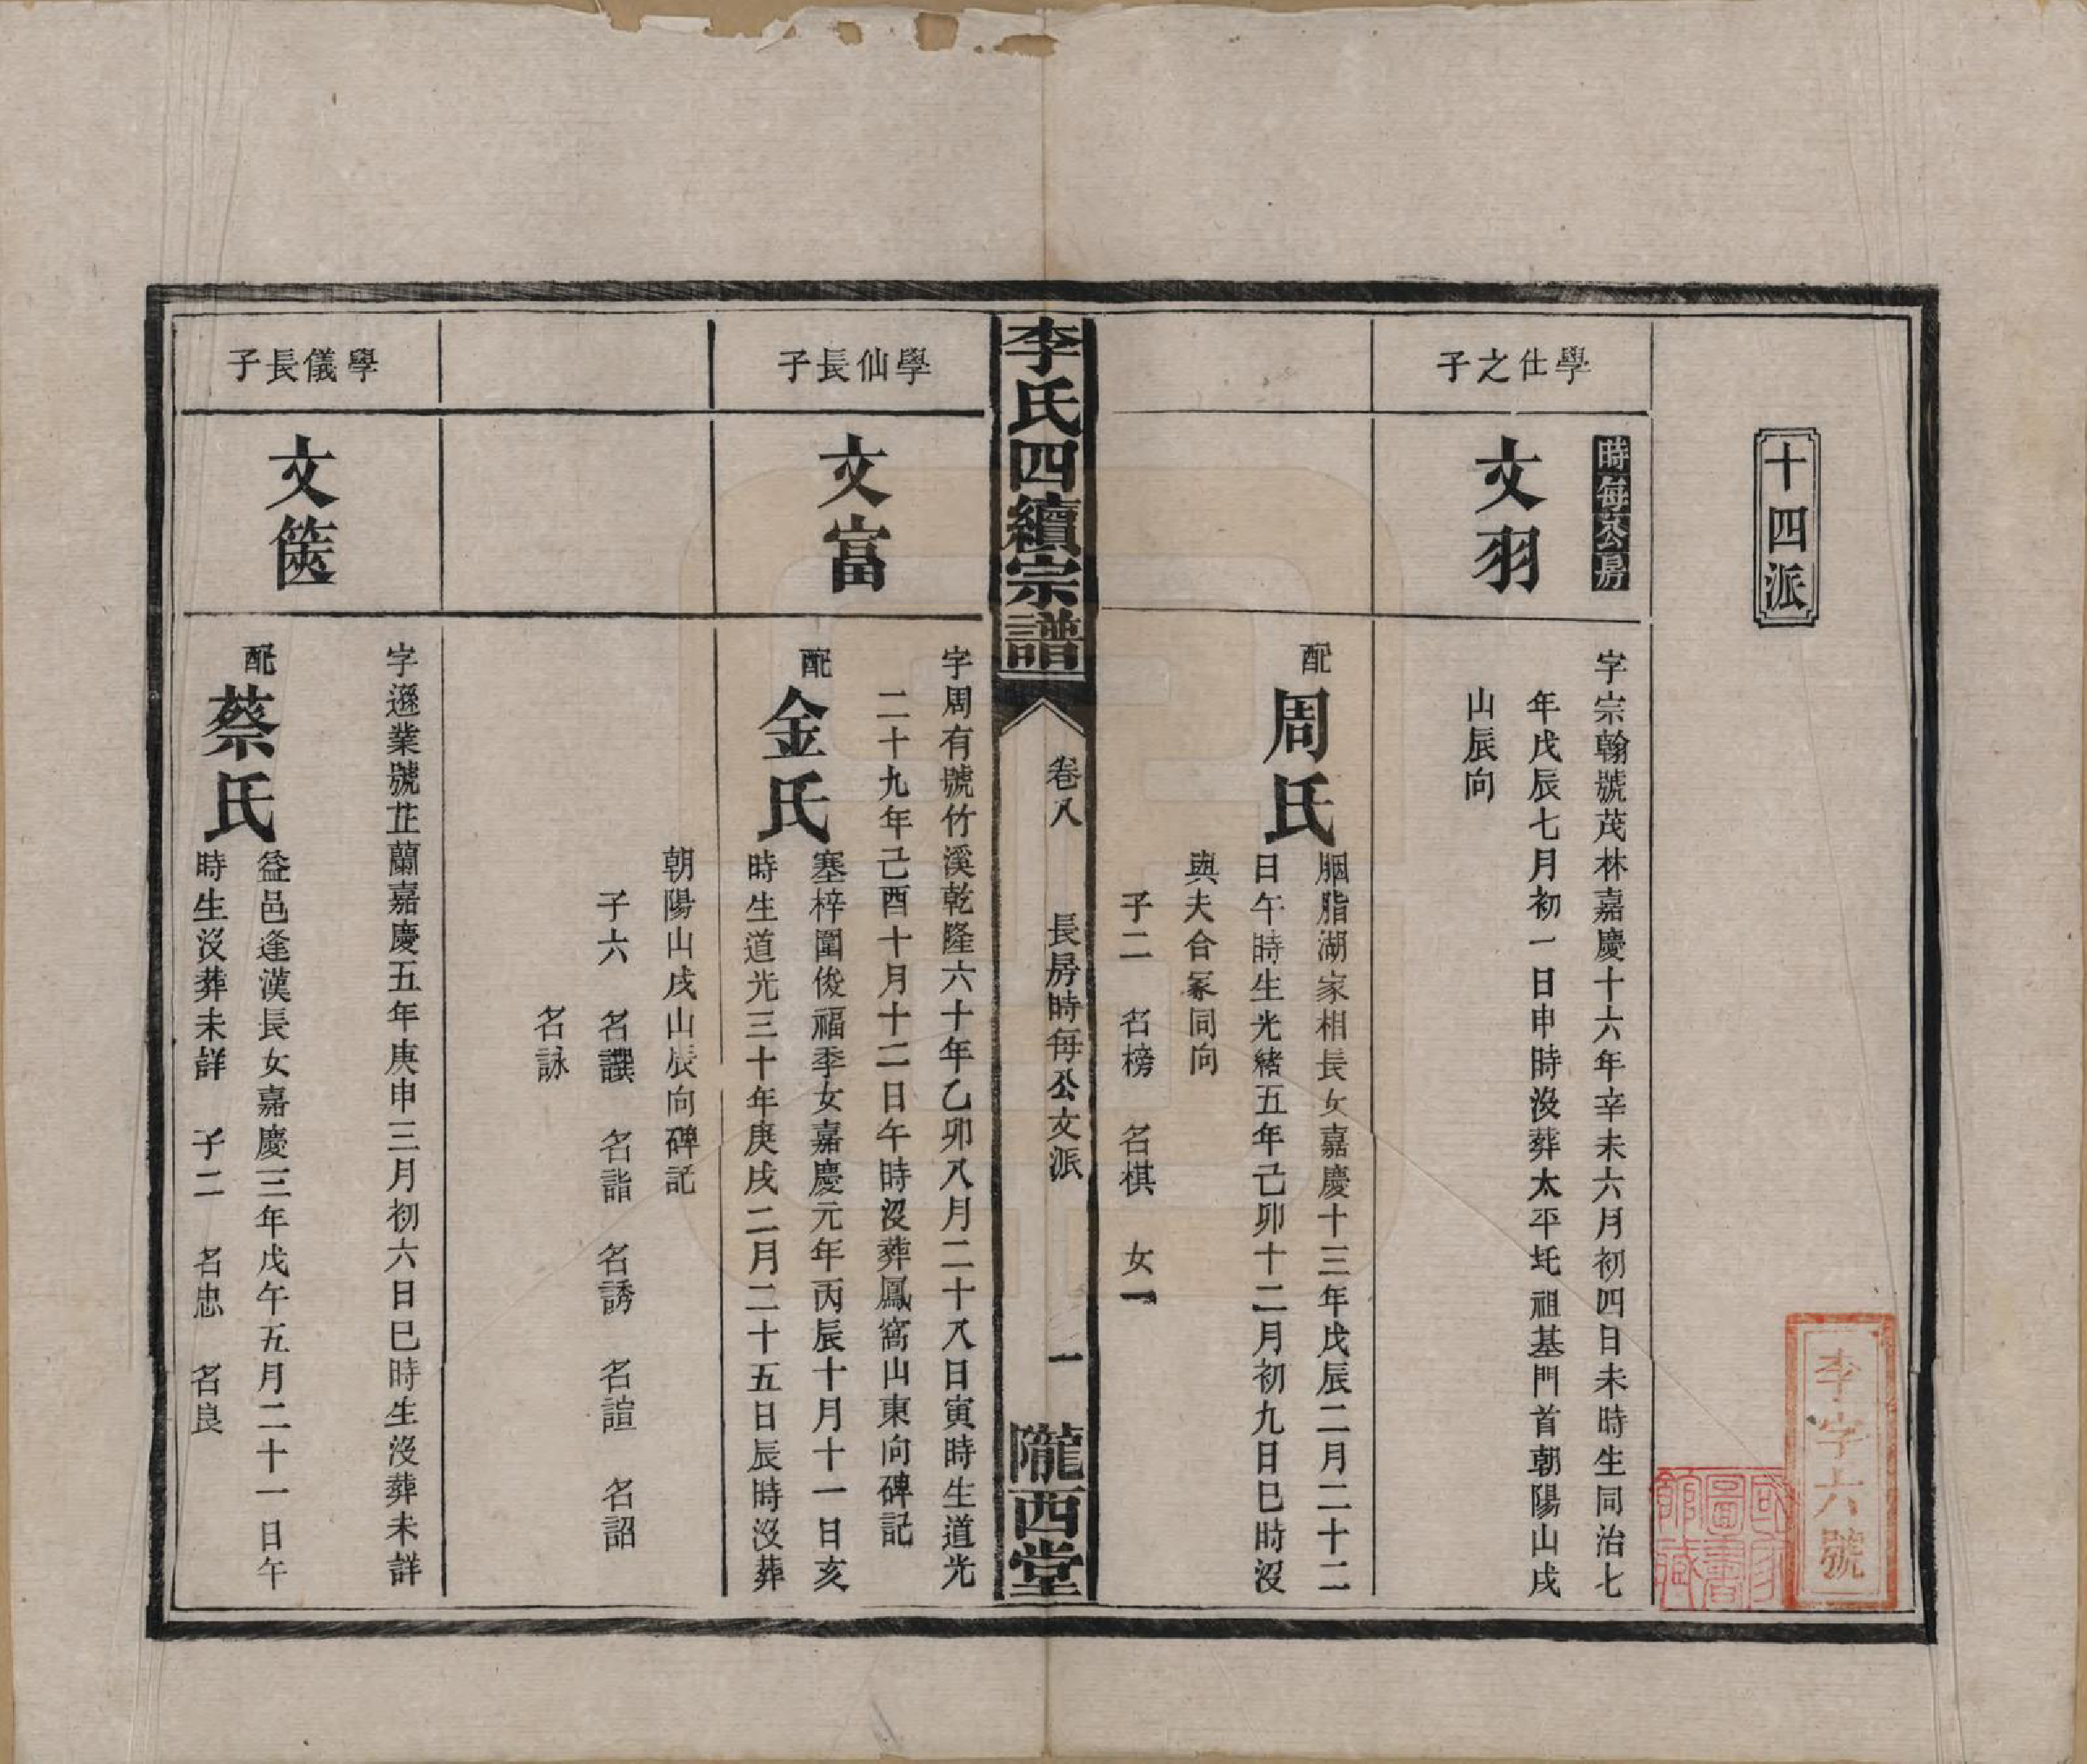 十四派
李字六號
國家圖書館藏
學仕之子
時每公房
文羽
字宗翰號茂林嘉慶十六年辛未六月初四日未時生同治七
年戊辰七月初一日申時沒葬太平圫祖基門首朝陽山戌
山辰向
配周氏
胭脂湖家相長女嘉慶十三年戊辰二月二十二
日午時生光緒五年己卯十二月初九日巳時沒
與夫合冢同向
子二 名榜 名棋 女一
李氏四續宗譜
卷八 長房時每公文派 一
隴西堂
學仙長子
文富
字周有號竹溪乾隆六十年乙卯八月二十八日寅時生道光
二十九年己酉十月十二日午時沒葬鳳窩山東向碑記
配金氏
塞梓園俊福季女嘉慶元年丙辰十月十一日亥
時生道光三十年庚戌二月二十五日辰時沒葬
朝陽山戌山辰向碑記
子六 名譔 名詣 名誘 名諠 名詔
名詠
學儀長子
文篋
字遜業號芷蘭嘉慶五年庚申三月初六日巳時生沒葬未詳
配蔡氏
益邑逢漢長女嘉慶三年戊午五月二十一日午
時生沒葬未詳 子二 名忠 名良